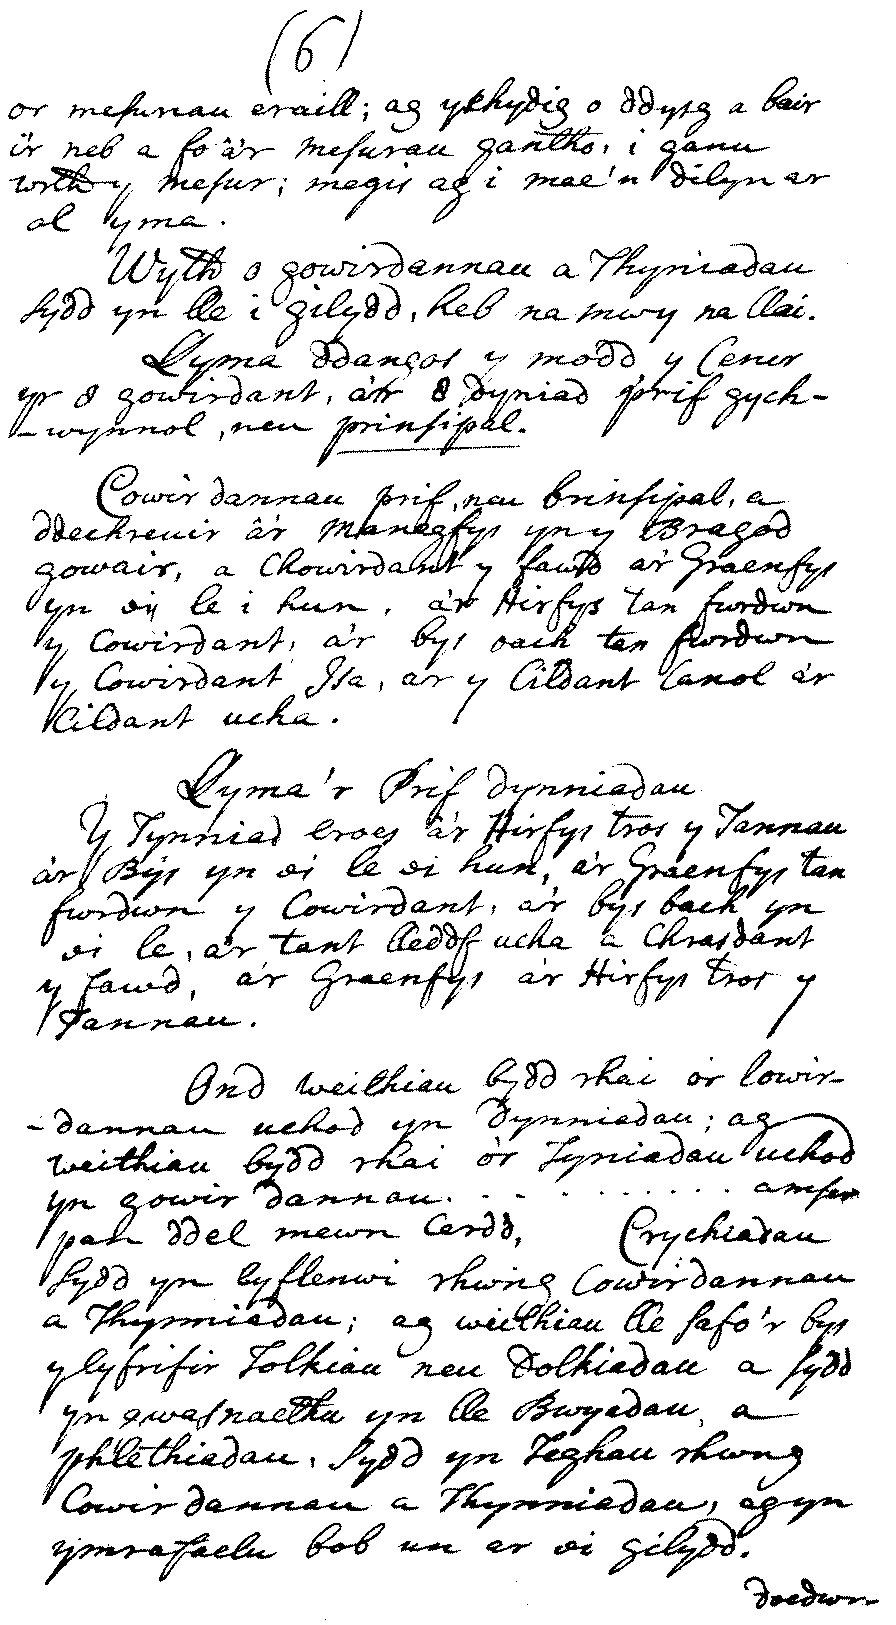 (6)
or mesurau eraill; ag ychydig o ddysg a bair
i'r neb a fo a'r mesurau gantho, i ganu
wrth y mesur; megis ag i mae'n ðilyn ar
ol yma.
Wyth o gowirdannau a Thyniadau
sydd yn lle i gilydd, heb na mwy na llai.
Llyma ddangos y modd y Cenir
yr 8 gowirdant, a'r 8 dyniad prif gych-
-wynnol, neu prinsipal.
Cowirdannau prif, neu brinsipal, a
ddechreuir a'r Manegfys yn y Bragod
gowair, a Chowirdant y fawd a'r Graenfys
yn ei le i hun, a'r Hirfys tan fwrdwn
y Cowirdant, a'r bys bach tan fwrdwn
y Cowirdant Isa, ar y Cildant Canol a'r
Cildant ucha.
Llyma'r Prif dynniadau
Y Tynniad Croes a'r Hirfys tros y Tannau
a'r Bys yn ei le ei hun, a'r Graenfys tan
fwrdwn y Cowirdant, a'r bys bach yn
ei le, a'r tant lleddf ucha a Chrasdant
y fawd, a'r Graenfys a'r Hirfys tros y
Tannau.
Ond weithiau bydd rhai o'r Cowir-
-dannau uchod yn dynniadau; ag
weithiau bydd rhai o'r Tyniadau uchod
yn gowirdannau . . . . . . . . . amser
pan ddel mewn Cerdd, Crychiadau
sydd yn Cyflenwi rhwng Cowirdannau
a Thynniadau; ag weithiau lle safo'r bys
y Cyfrifir Tolkiau neu Dolkiadau a sydd
yn gwasnaethu yn lle Bwyadau, a
phlethiadau, sydd yn Teghau rhwng
Cowirdannau a Thynniadau, ag yn
ymrafaelu bob un ar ei gilydd.
doedwn